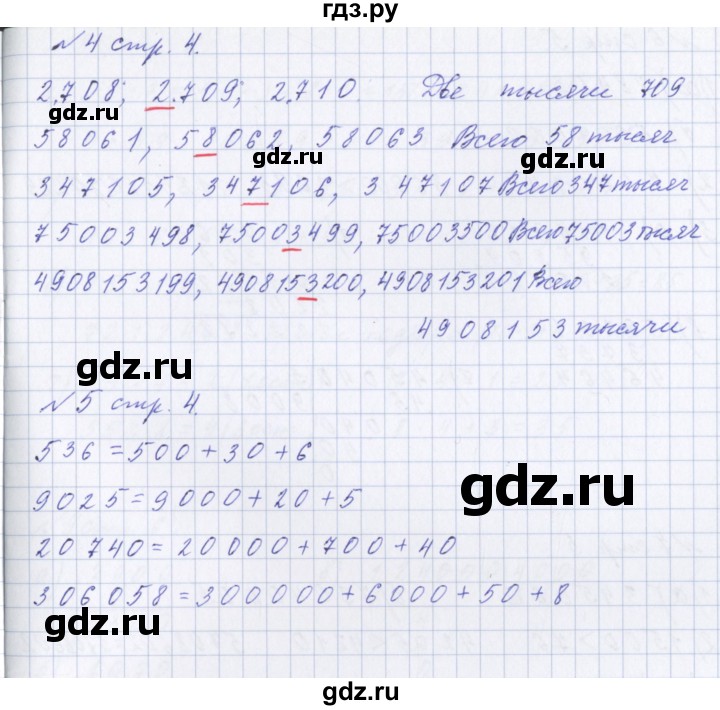 гдз.ру
№4 стр. 4.
2.708; 2.709; 2.710. Две тысячи 709
gdz.ru
58061, 58062, 58063 Всего 58 тысяч
gdz.ru gdz.ru
347105, 347106, 347107 Всего 347 тысяч
75003498, 75003499, 75003500 Всего 75003 тысяч
4908153199, 4908153200, 4908153201 Всего
4908153 тысячи
gdz.ru
№5 стр. 4.
536 = 500 + 30 + 6
9025 = 9000 + 20 + 5
gdz.ru
20740 = 20000 + 700 + 40
306058 = 300000 + 6000 + 50 + 8
gdz.ru
gdz.ru